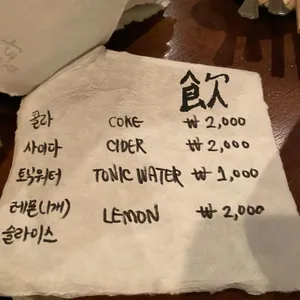 飮
콜라 COKE ₩ 2,000
사이다 CIDER ₩ 2,000
토닉워터 TONIC WATER ₩ 1,000
레몬(1개) LEMON ₩ 2,000
슬라이스